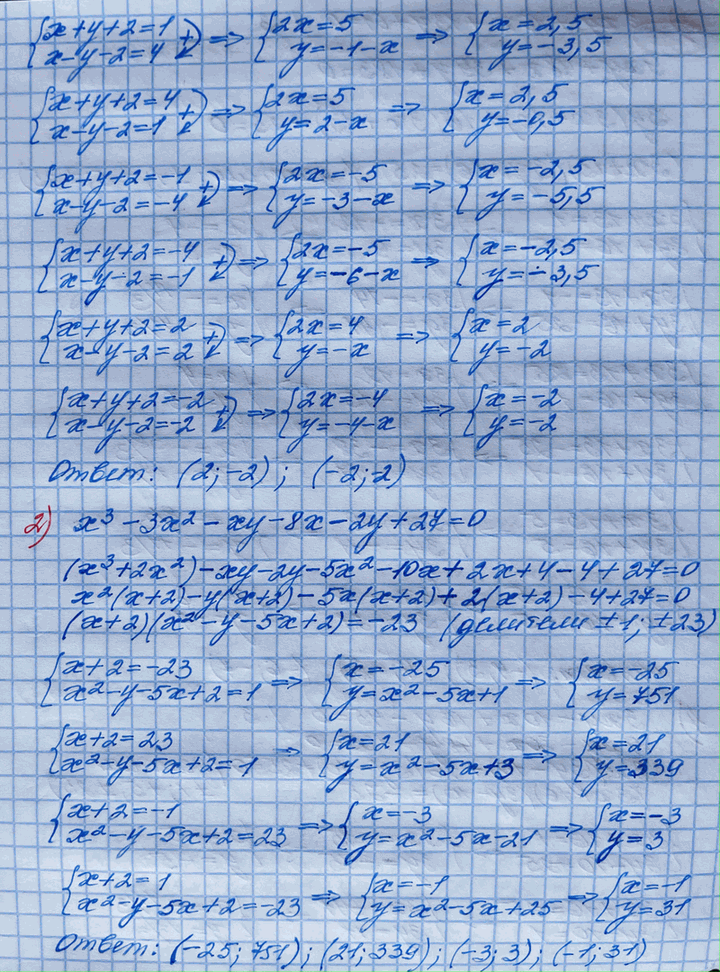 {x+y+2=1 x-y-2=4 +) => {2x=5 y=-1-x => {x=2,5 y=-3,5
{x+y+2=4 x-y-2=1 +) => {2x=5 y=2-x => {x=2,5 y=-0,5
{x+y+2=-1 x-y-2=-4 +) => {2x=-5 y=-3-x => {x=-2,5 y=-5,5
{x+y+2=-4 x-y-2=-1 +) => {2x=-5 y=-6-x => {x=-2,5 y=-3,5
{x+y+2=2 x-y-2=2 +) => {2x=4 y=-x => {x=2 y=-2
{x+y+2=-2 x-y-2=-2 +) => {2x=-4 y=-4-x => {x=-2 y=-2
Ответ: (2;-2); (-2;2)
2) x³-3x²-xy-8x-2y+27=0
(x³+2x²)-xy-2y-5x²-10x+2x+4-4+27=0
x²(x+2)-y(x+2)-5x(x+2)+2(x+2)-4+27=0
(x+2)(x²-y-5x+2)=-23 (делители ±1; ±23)
{x+2=-23 x²-y-5x+2=1 => {x=-25 y=x²-5x+1 => {x=-25 y=751
{x+2=23 x²-y-5x+2=-1 => {x=21 y=x²-5x+3 => {x=21 y=339
{x+2=-1 x²-y-5x+2=23 => {x=-3 y=x²-5x-21 => {x=-3 y=3
{x+2=1 x²-y-5x+2=-23 => {x=-1 y=x²-5x+25 => {x=-1 y=31
Ответ: (-25; 751); (21; 339); (-3; 3); (-1; 31)